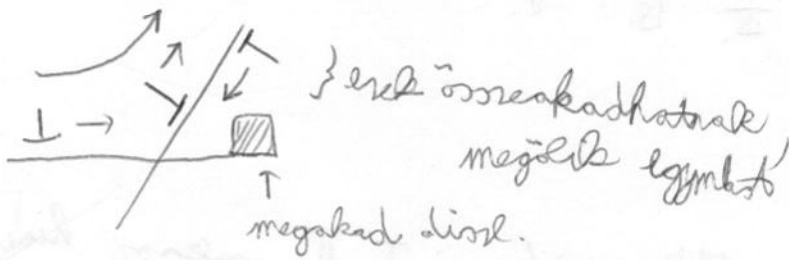 } ezek összeakadhatnak
megölik egymást
megakad diszl.